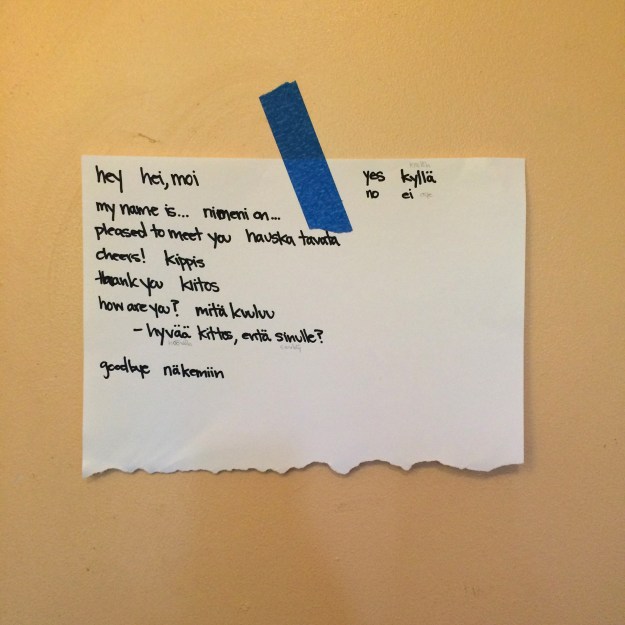 hey hei, moi
my name is... nimeni on...
pleased to meet you hauska tavata
cheers! kippis
thank you kiitos
how are you? mitä kuuluu
- hyvää kiitos, entä sinulle?
goodbye näkemiin
yes kyllä
no ei